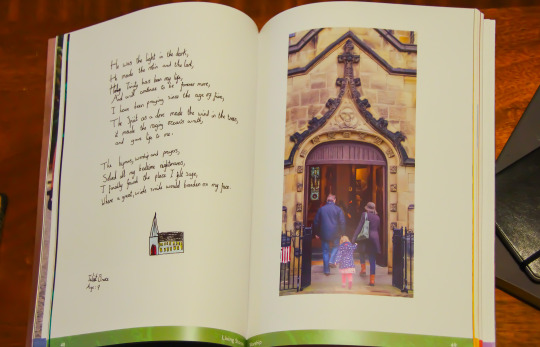 He was the light in the dark,
He made the and the lad,
Holy Trinity has been my life,
And will continue to be forever more,
I have been praying since the age of five,
The Spirit as a dove made the wind in the trees,
it made the raging oceans
and gave life to me.
The hymns, worship and prayers,
all my bedtime nightmares,
I finally found the place I felt safe,
Where a great, wide smile would broaden on my face.
Age: 9
Living